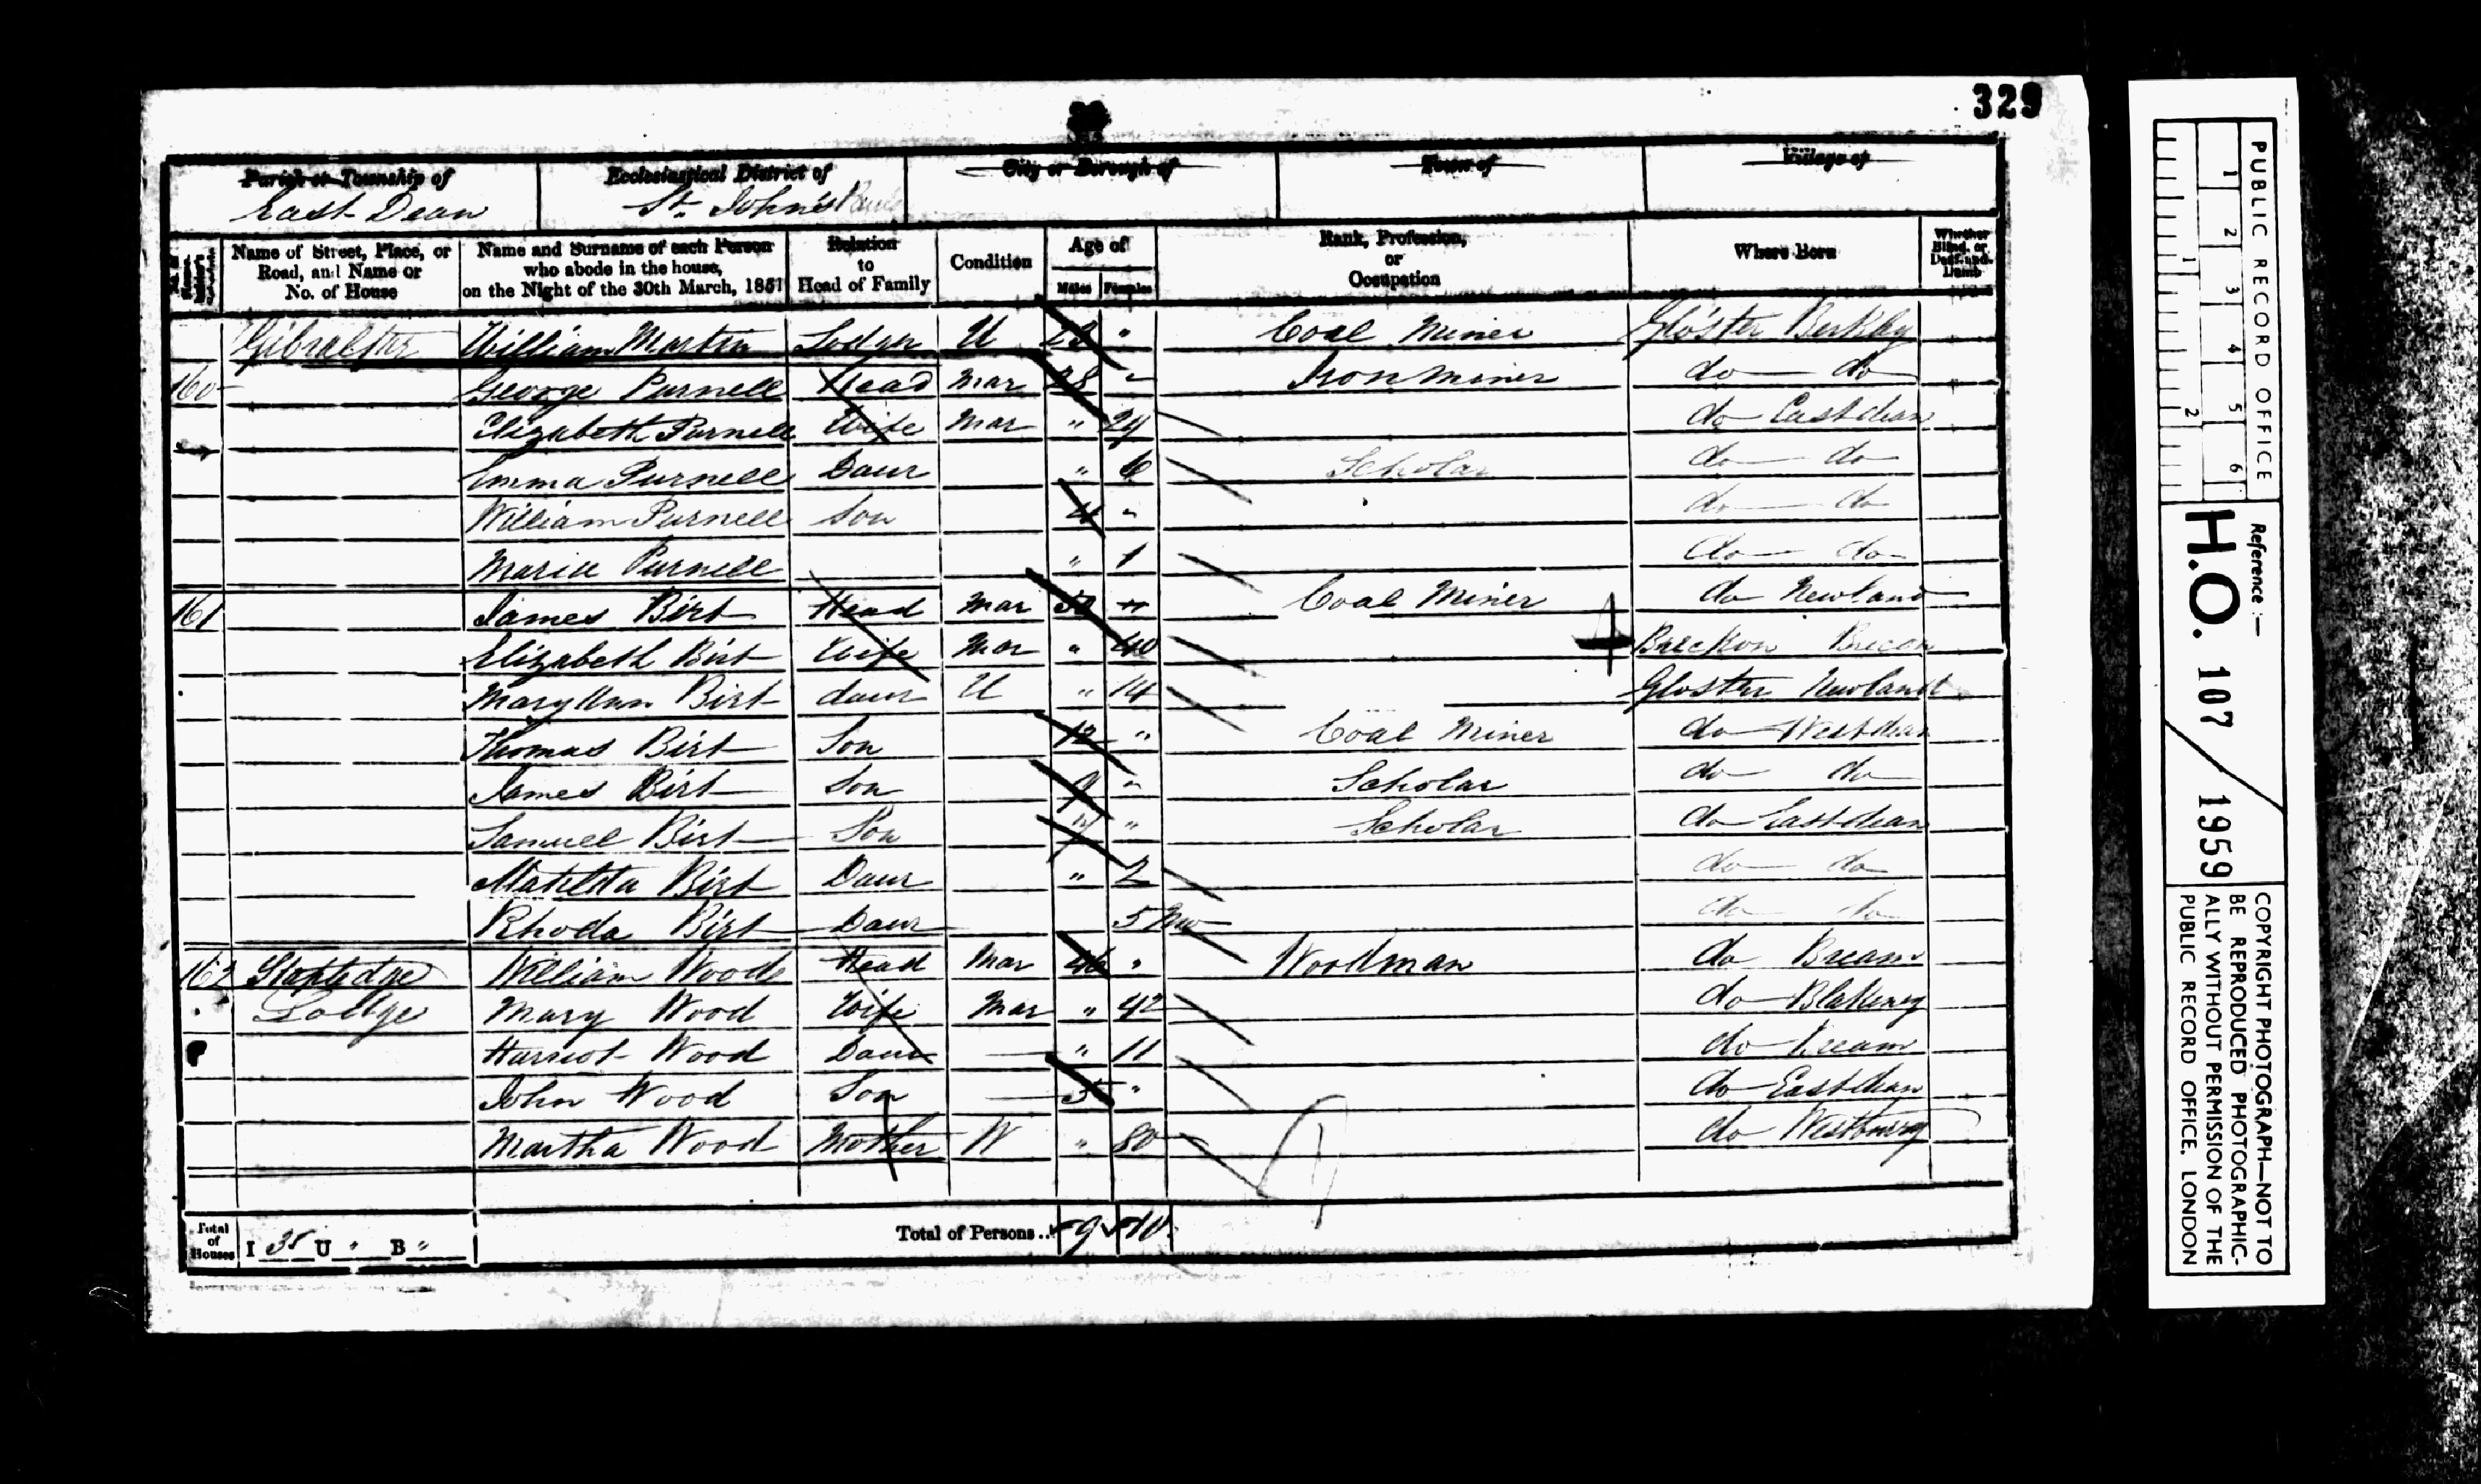 329
Parish or Township of Ecclesiastical District of City or Borough of Town of Village of
East Dean St. John's
Name of Street, Place, or Road, and Name or No. of House Name and Surname of each Person who abode in the house, on the Night of the 30th March, 1851 Relation to Head of Family Condition Age of Males Females Rank, Profession, or Occupation Where Born Whether Blind, or Deaf-and-Dumb
Gibralter William Martin Lodger U 23 " Coal Miner Gloster Berkley
160 George Purnell Head Mar 28 " Iron miner do do
Elizabeth Purnell Wife Mar " 29 do Eastdean
Emma Purnell Daur " 6 Scholar do do
William Purnell Son 4 " do do
Maria Purnell " 1 do do
161 James Birt Head Mar " Coal Miner do Newland
Elizabeth Birt Wife Mar " 40 Brecon
Mary Ann Birt daur U " 14 Gloster Newland
Thomas Birt Son 12 " Coal Miner do Westdean
James Birt Son 9 " Scholar do do
Samuel Birt Son 7 " Scholar do Eastdean
Matilda Birt Daur " 2 do do
Rhoda Birt Daur 5 Mo do do
162 William Wood Head Mar 46 " Woodman do Bream
Lodge Mary Wood Wife Mar " 42 do Blakeney
Harriot Wood Daur " 11 do Bream
John Wood Son 5 " do Eastdean
Martha Wood Mother W " 80 do Westbury
Total of Houses I 35 U " B " Total of Persons.. 9 10
PUBLIC RECORD OFFICE
1 2 3 4 5 6
1 2
Reference:—
H.O. 107 / 1959
COPYRIGHT PHOTOGRAPH—NOT TO
BE REPRODUCED PHOTOGRAPHIC-
ALLY WITHOUT PERMISSION OF THE
PUBLIC RECORD OFFICE, LONDON